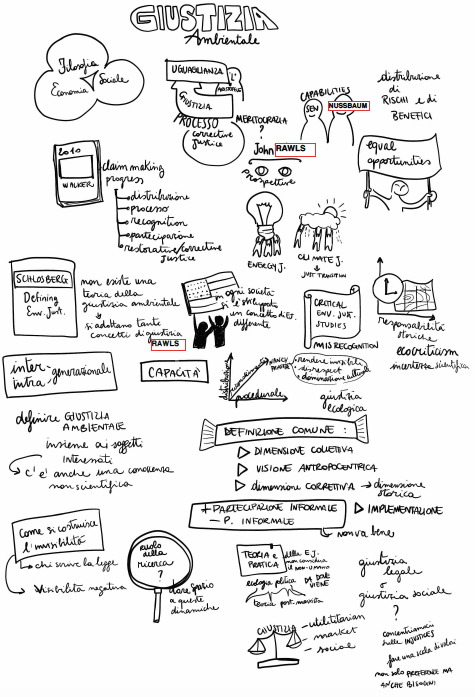 GIUSTIZIA
Ambientale
Filosofia
Economia
Sociale
UGUAGLIANZA
GIUSTIZIA
PROCESSO
corrective
justice
MERITOCRAZIA
?
John RAWLS
prospettive
CAPABILITIES
SEN
NUSSBAUM
distribuzione
di
RISCHI e di
BENEFICI
equal
opportunities
2010
WALKER
claim making
progress
distribuzione
processo
recognition
partecipazione
restorative/corrective
justice
ENERGY J.
CLIMATE J.
JUST TRANSITION
SCHLOSBERG
Defining
Env. Just.
non esiste una
teoria della
giustizia ambientale
si adottano tante
concetti di giustizia
RAWLS
in ogni società
si è sviluppato
un concetto di
differente
CRITICAL
ENV. JUST.
STUDIES
MISRECOGNITION
responsabilità
storiche
ecocriticism
incertezza scientifica
inter-
intra generazionale
CAPACITÀ
distributiva
procedurale
rendere invisibili
disrespect
dominazione
giustizia
ecologica
definire GIUSTIZIA
AMBIENTALE
insieme ai soggetti
interessati
c'è anche una conoscenza
non scientifica
DEFINIZIONE COMUNE:
DIMENSIONE COLLETTIVA
VISIONE ANTROPOCENTRICA
dimensione CORRETTIVA → dimensione
storica
+ PARTECIPAZIONE INFORMALE
- P. INFORMALE
IMPLEMENTAZIONE
non va bene
Come si costruisce
l'invisibilità
chi scrive la legge
Visibilità negativa
ruolo
della
ricerca
?
dare spazio
a queste
dinamiche
TEORIA e
PRATICA
della E.J.
non considera
il non-umano
ecologia politica
DA DOVE
VIENE
teoria post-marxista
giustizia
legale
o
giustizia sociale
?
GIUSTIZIA
- utilitarian
- market
- social
concentriamoci
sulle INJUSTICES
fare una scala di valori
non solo PREFERENZE MA
ANCHE BISOGNI